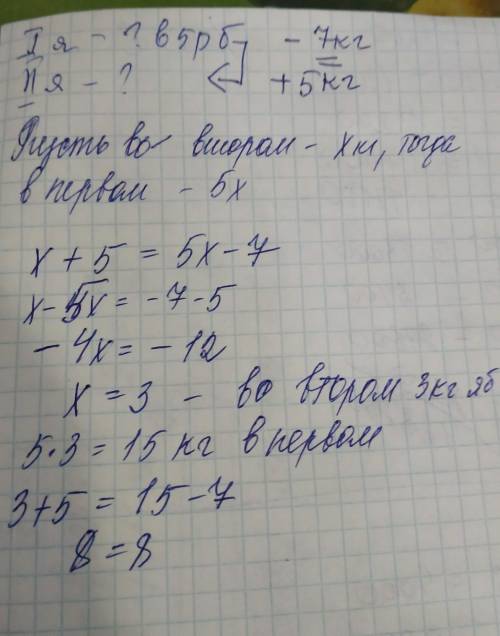 I я - ? в 5 р б - 7кг
II я - ? + 5кг
Пусть во втором - х кг, тогда
в первом - 5х
х + 5 = 5х - 7
х - 5х = -7 - 5
- 4х = - 12
х = 3 - во втором 3кг яб
5·3 = 15 кг в первом
3+5 = 15 - 7
8 = 8